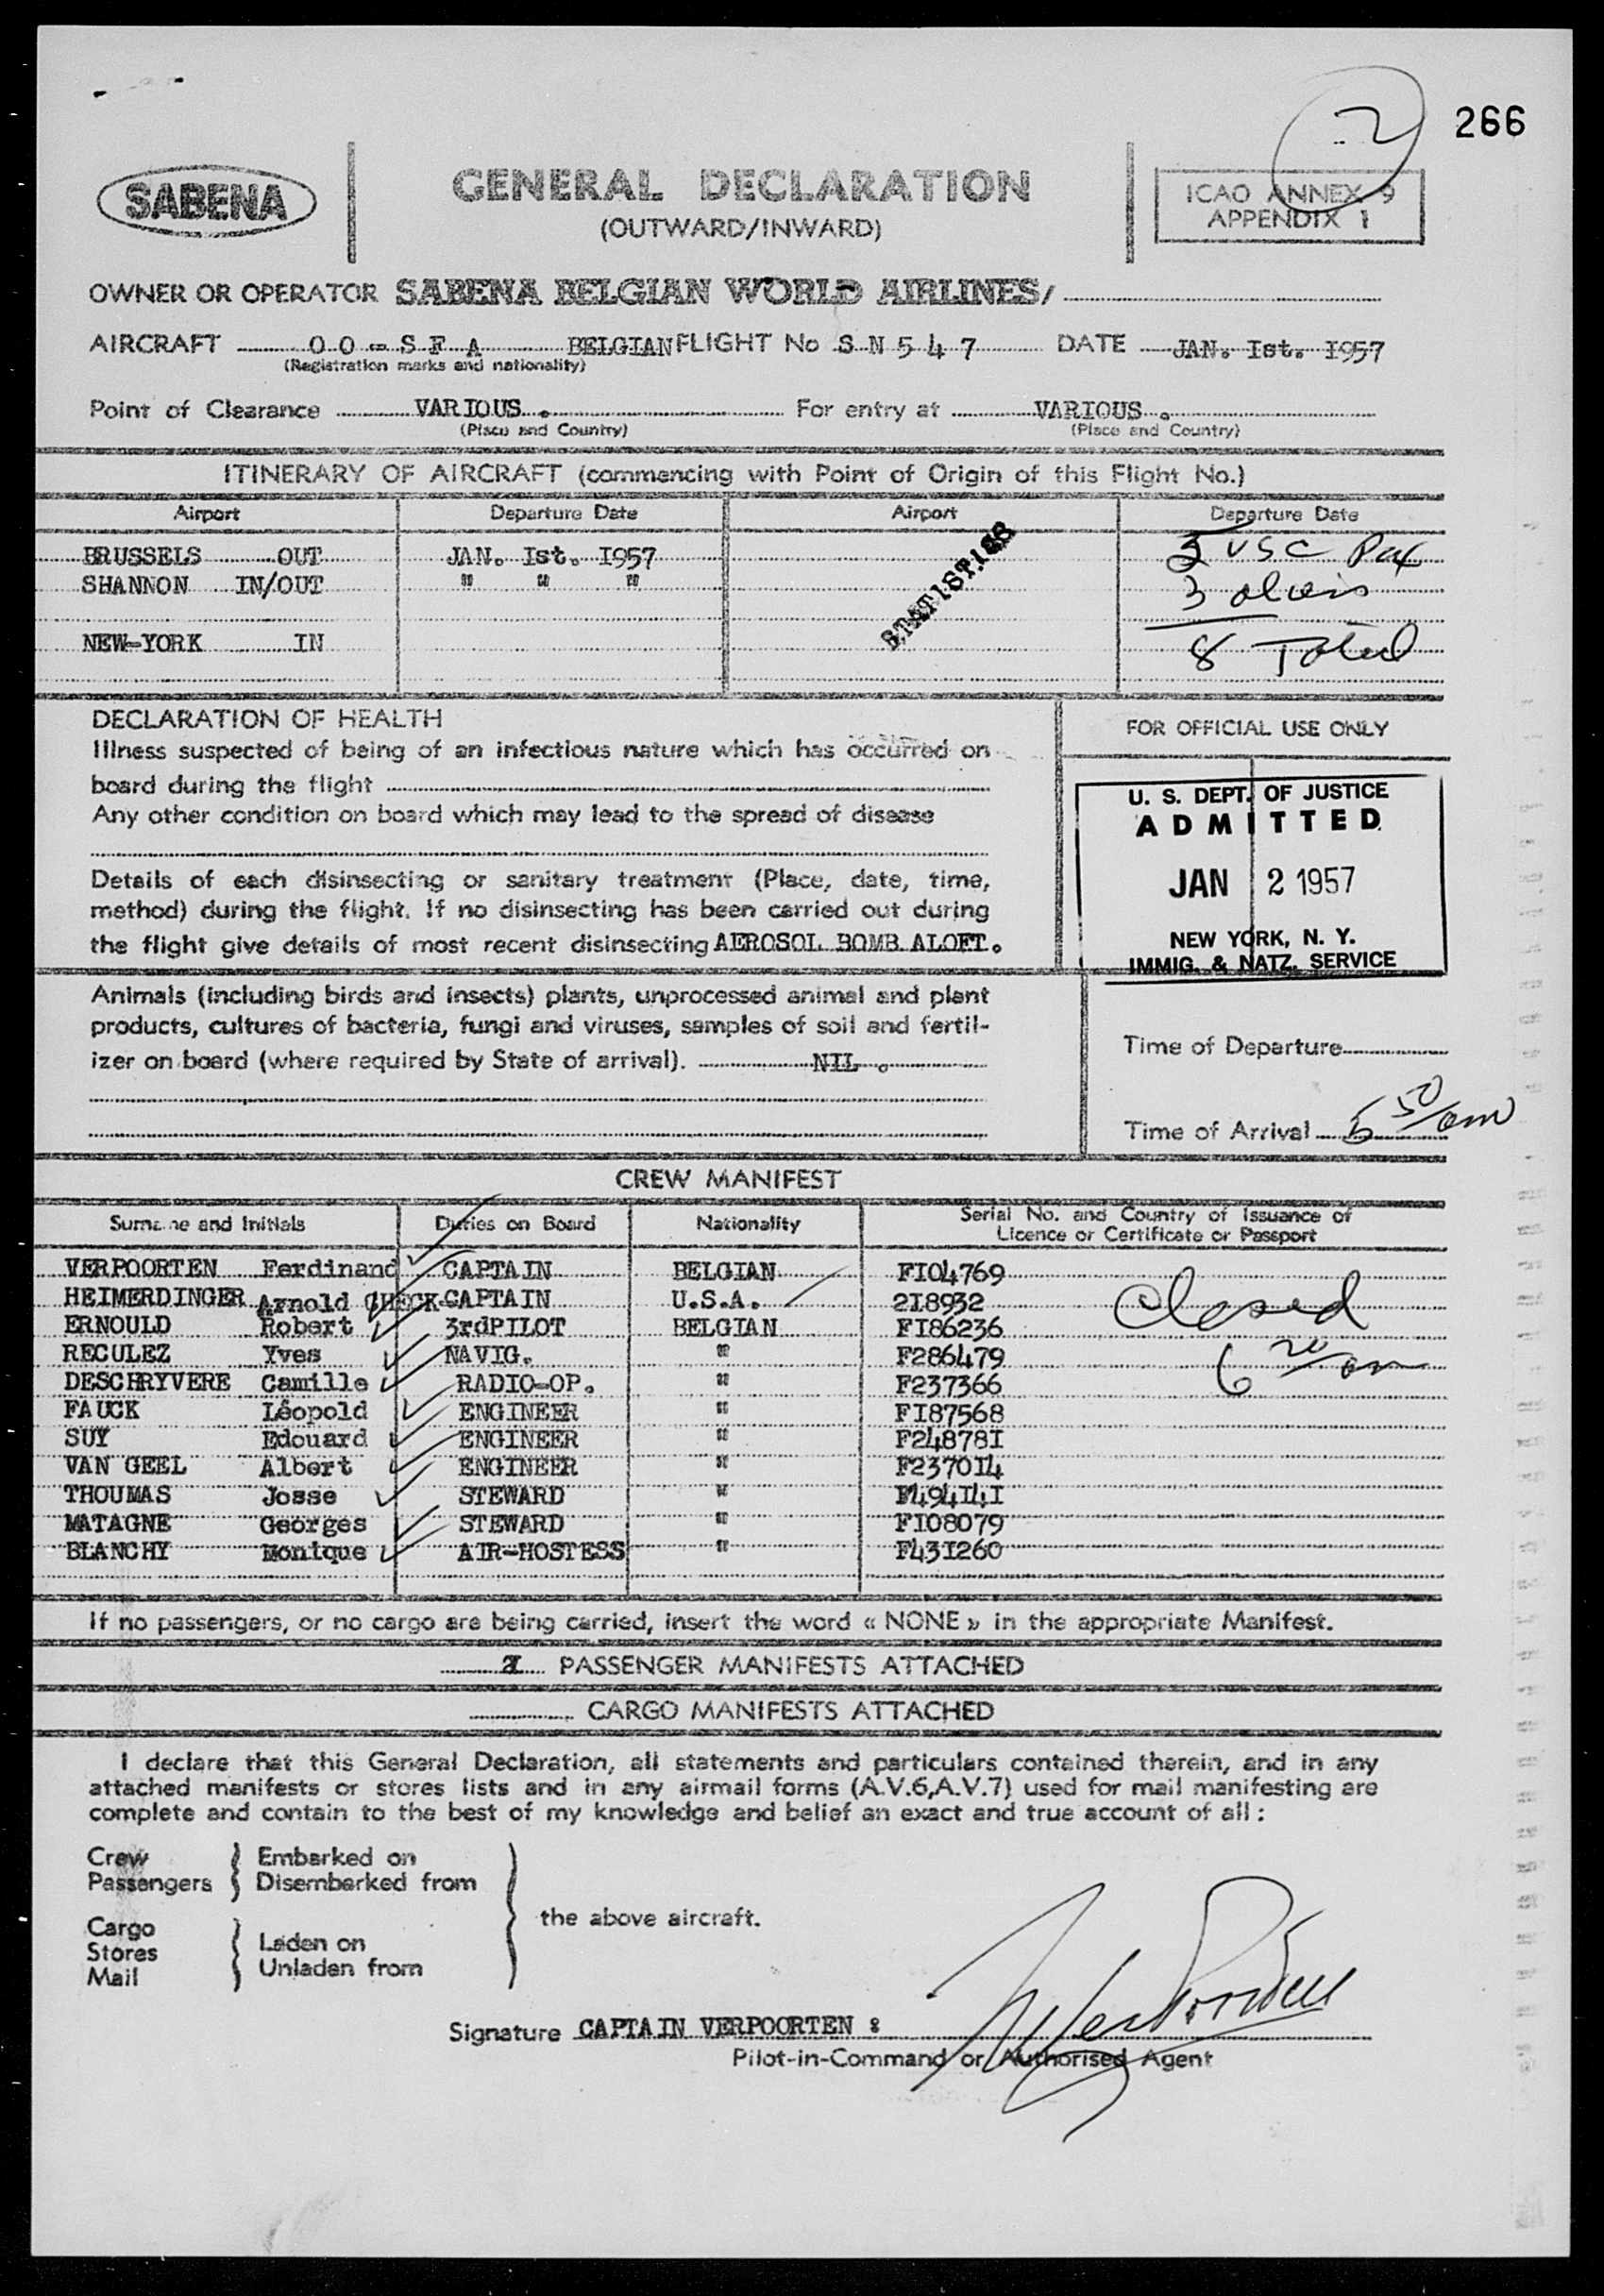 2
266
SABENA
GENERAL DECLARATION
(OUTWARD/INWARD)
ICAO ANNEX 9
APPENDIX 1
OWNER OR OPERATOR SABENA BELGIAN WORLD AIRLINES/
AIRCRAFT OO-SFA BELGIAN FLIGHT No SN547 DATE JAN. Ist. I957
(Registration marks and nationality)
Point of Clearance VARIOUS. For entry at VARIOUS.
(Place and Country) (Place and Country)
ITINERARY OF AIRCRAFT (commencing with Point of Origin of this Flight No.)
Airport Departure Date Airport Departure Date
BRUSSELS OUT JAN. Ist. I957 5 USC Pax
SHANNON IN/OUT " " " 3 aliens
STATISTICS
NEW-YORK IN 8 Total
DECLARATION OF HEALTH
Illness suspected of being of an infectious nature which has occurred on
board during the flight
Any other condition on board which may lead to the spread of disease
Details of each disinsecting or sanitary treatment (Place, date, time,
method) during the flight. If no disinsecting has been carried out during
the flight give details of most recent disinsecting AEROSOL BOMB ALOFT.
FOR OFFICIAL USE ONLY
U. S. DEPT. OF JUSTICE
ADMITTED
JAN 2 1957
NEW YORK, N. Y.
IMMIG. & NATZ. SERVICE
Animals (including birds and insects) plants, unprocessed animal and plant
products, cultures of bacteria, fungi and viruses, samples of soil and fertil-
izer on board (where required by State of arrival). NIL.
Time of Departure
Time of Arrival 5 50/am
CREW MANIFEST
Surname and Initials Duties on Board Nationality Serial No. and Country of Issuance of
Licence or Certificate or Passport
VERPOORTEN Ferdinand CAPTAIN BELGIAN FI04769
HEIMERDINGER Arnold CHECK-CAPTAIN U.S.A. 2I8932
ERNOULD Robert 3rdPILOT BELGIAN FI86236
RECULEZ Yves NAVIG. " F286479
DESCHRYVERE Camille RADIO-OP. " F237366
FAUCK Léopold ENGINEER " FI87568
SUY Edouard ENGINEER " F24878I
VAN GEEL Albert ENGINEER " F2370I4
THOUMAS Josse STEWARD " F494I4I
MATAGNE Georges STEWARD " FI08079
BLANCHY Monique AIR-HOSTESS " F43I260
Closed
6 20/am
If no passengers, or no cargo are being carried, insert the word « NONE » in the appropriate Manifest.
PASSENGER MANIFESTS ATTACHED
CARGO MANIFESTS ATTACHED
I declare that this General Declaration, all statements and particulars contained therein, and in any
attached manifests or stores lists and in any airmail forms (A.V.6,A.V.7) used for mail manifesting are
complete and contain to the best of my knowledge and belief an exact and true account of all :
Crew Embarked on
Passengers Disembarked from
the above aircraft.
Cargo
Stores Laden on
Mail Unladen from
Signature CAPTAIN VERPOORTEN : Verpoorten
Pilot-in-Command or Authorised Agent